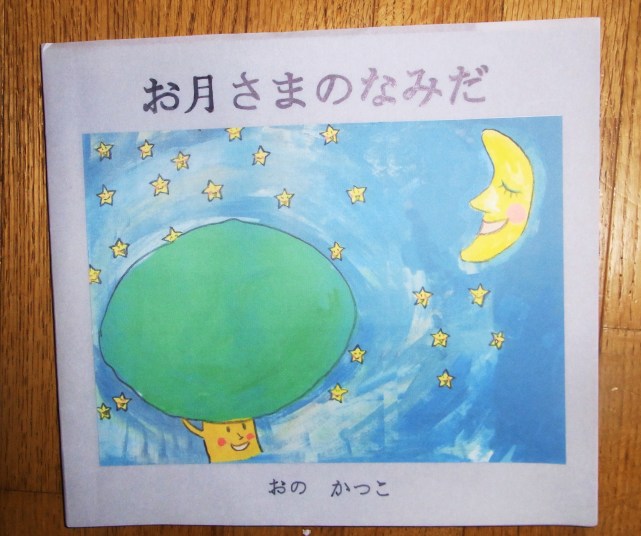 お月さまのなみだ
おの　かつこ